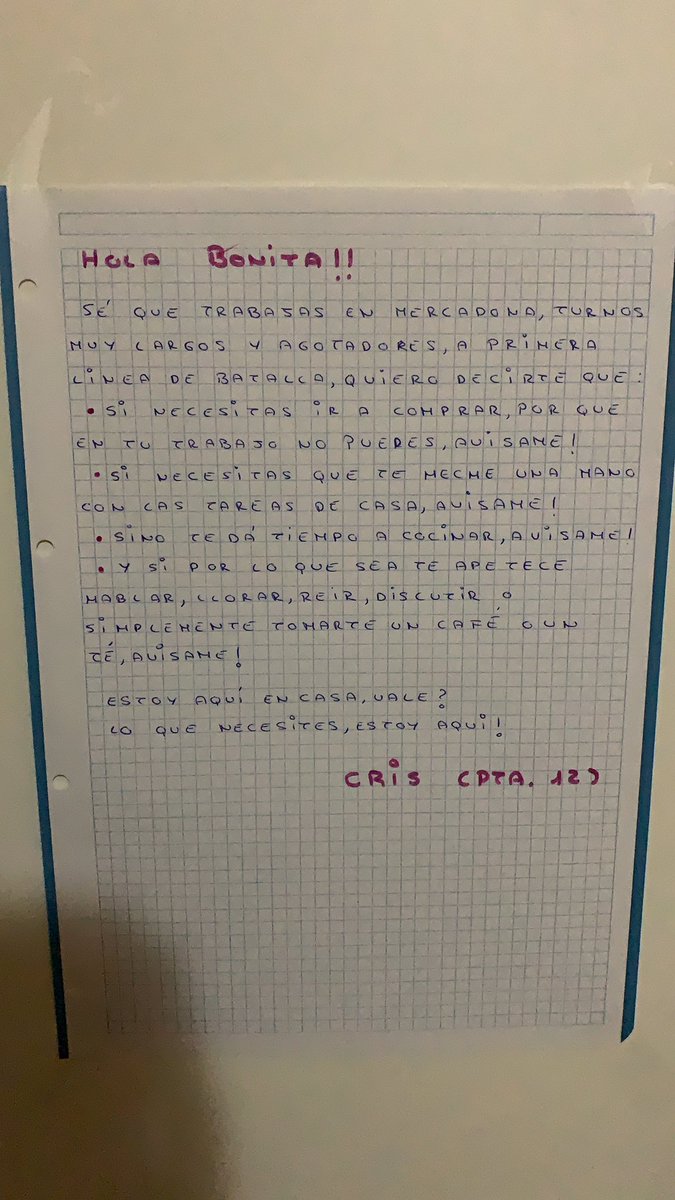 HOLA BONITA!!
SÉ QUE TRABAJAS EN MERCADONA, TURNOS
MUY LARGOS Y AGOTADORES, A PRIMERA
LÍNEA DE BATALLA, QUIERO DECIRTE QUE:
• SI NECESITAS IR A COMPRAR, POR QUE
EN TU TRABAJO NO PUEDES, AVISAME!
• SI NECESITAS QUE TE HECHE UNA MANO
CON LAS TAREAS DE CASA, AVISAME!
• SINO TE DÁ TIEMPO A COCINAR, AVISAME!
• Y SI POR LO QUE SEA TE APETECE
HABLAR, LLORAR, REIR, DISCUTIR O
SIMPLEMENTE TOMARTE UN CAFÉ O UN
TÉ, AVISAME!
ESTOY AQUÍ EN CASA, VALE?
LO QUE NECESITES, ESTOY AQUI!
CRIS (PTA. 12)